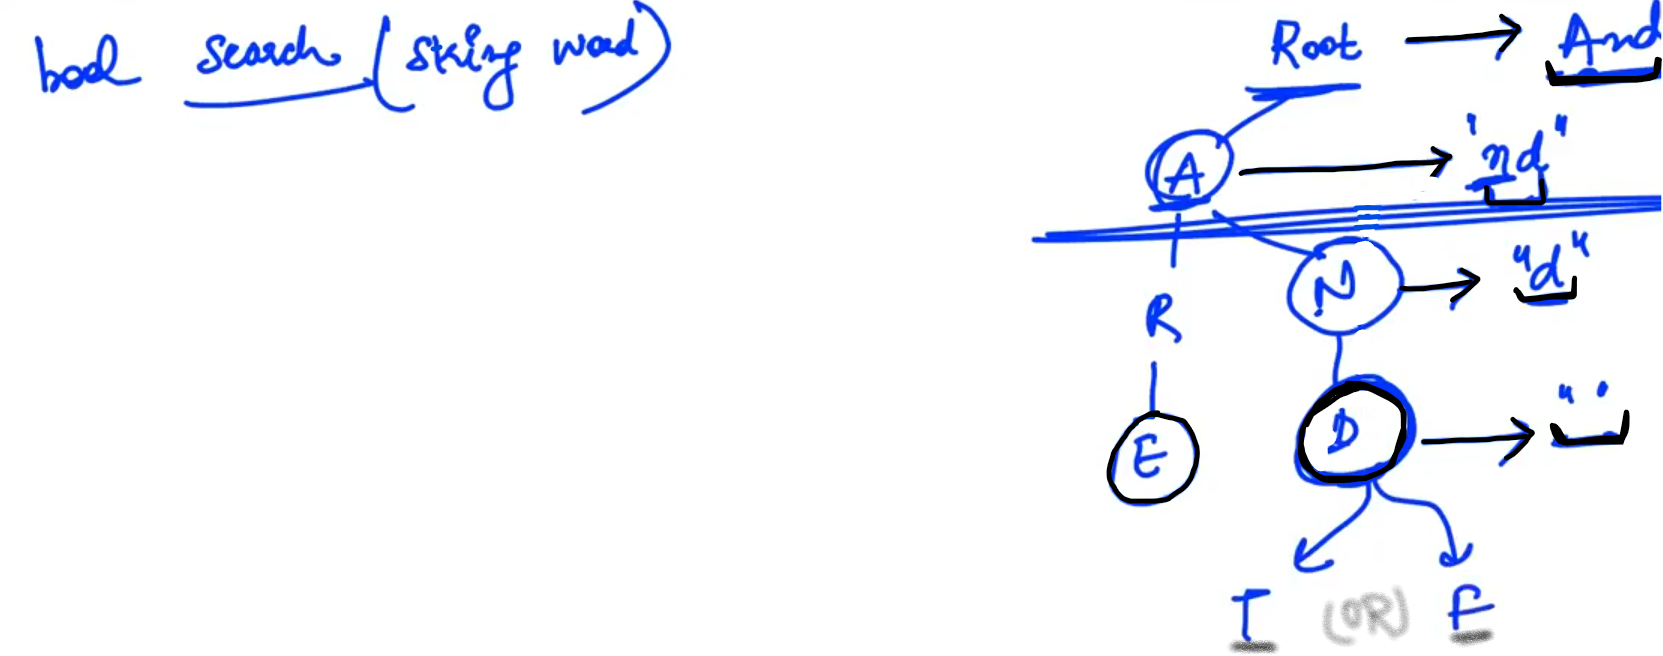 bool search (string word)
Root → And
A → "nd"
N → "d"
R
D → " "
E
T (OR) F